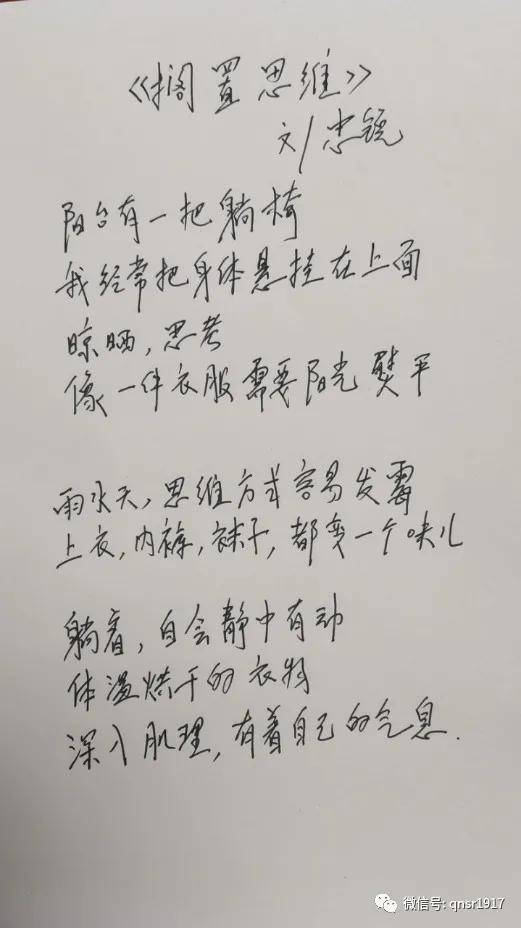 《搁置思维》
文/忠镜
阳台有一把躺椅
我经常把身体悬挂在上面
晾晒，思考
像一件衣服需要阳光熨平
雨水天，思维方式容易发霉
上衣，内裤，袜子，都变一个味儿
躺着，自会静中有动
体温烘干的衣物
深入肌理，有着自己的气息.
微信号: qnsr1917